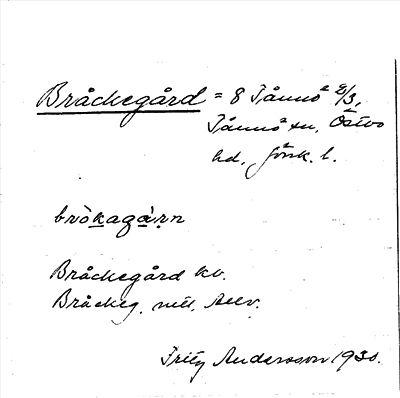 Bråckegård = 8 Tånnö 2/3,
Tånnö sn, Östbo
hd, Jönk. l.
brò̱kagà̱ṛn
Bråckegård kv.
Bråckeg. mtl,
Fritz Andersson 1930.